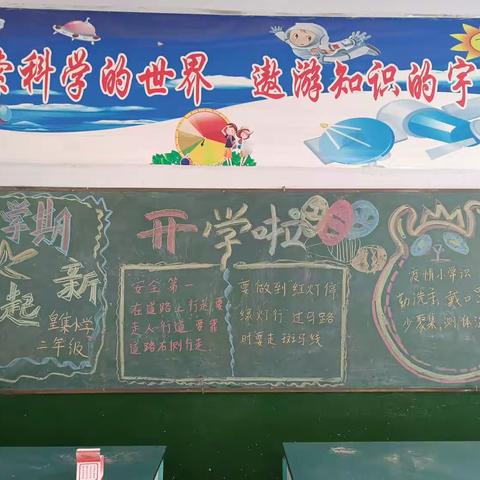 索科学的世界 遨游知识的宇
学期
新
起
皇集小学
二年级
开学啦
安全第一
在道路上行走要
走人行道
道路右侧行走
要做到红灯停
绿灯行 过马路
时要走斑马线
疫情小学识
勤洗手 戴口
少聚集 测体